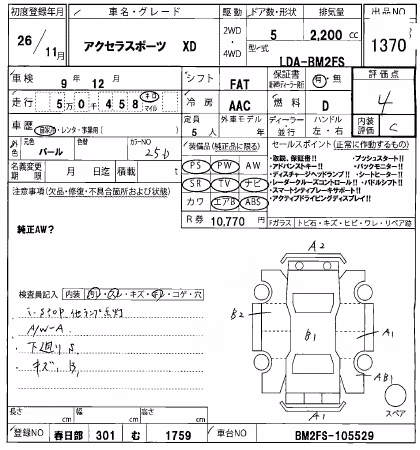 初度登録年月 車名・グレード 駆動 ドア数・形状 排気量 出品NO
26/11月 アクセラスポーツ XD 2WD・4WD 5 2,200 cc 1370
型式 LDA-BM2FS
車検 9年12月 シフト FAT 保証書 有・無 評価点 4
走行 5万0千458 キロ マイル 冷房 AAC 燃料 D 内装評価 C
車歴 自家用・レンタ・事業用( ) 定員 5人 外車モデル 年 ディーラー・並行 ハンドル 左・右
外色 元色 パール 色替 カラーNO 25D
装備品(純正品に限る) セールスポイント(正常に作動するもの)
名義変更期限 月 日迄 積載 t
PS PW AW
SR TV ナビ
カワ エアB ABS
R券 10,770円
・取説、保証書!! ・プッシュスタート!!
・アドバンスキー!! ・バックモニター!!
・ディスチャージヘッドランプ!! ・シートヒーター!!
・レーダークルーズコントロール!! ・パドルシフト!!
・スマートシティブレーキサポート!!
・アクティブドライビングディスプレイ!!
注意事項(欠品・修復・不具合箇所および状態)
純正AW?
Fガラス トビ石・キズ・ヒビ・ワレ・リペア跡
検査員記入 内装 ・キズ・ ・コゲ・穴
i-STOP 他ランプ点灯
A/W-A
下廻りS
キズ、B1
A2
B2
B1
A1
AB1
A1
スペア
長さ cm 幅 cm 高さ cm
登録NO 春日部 301 む 1759 車台NO BM2FS-105529